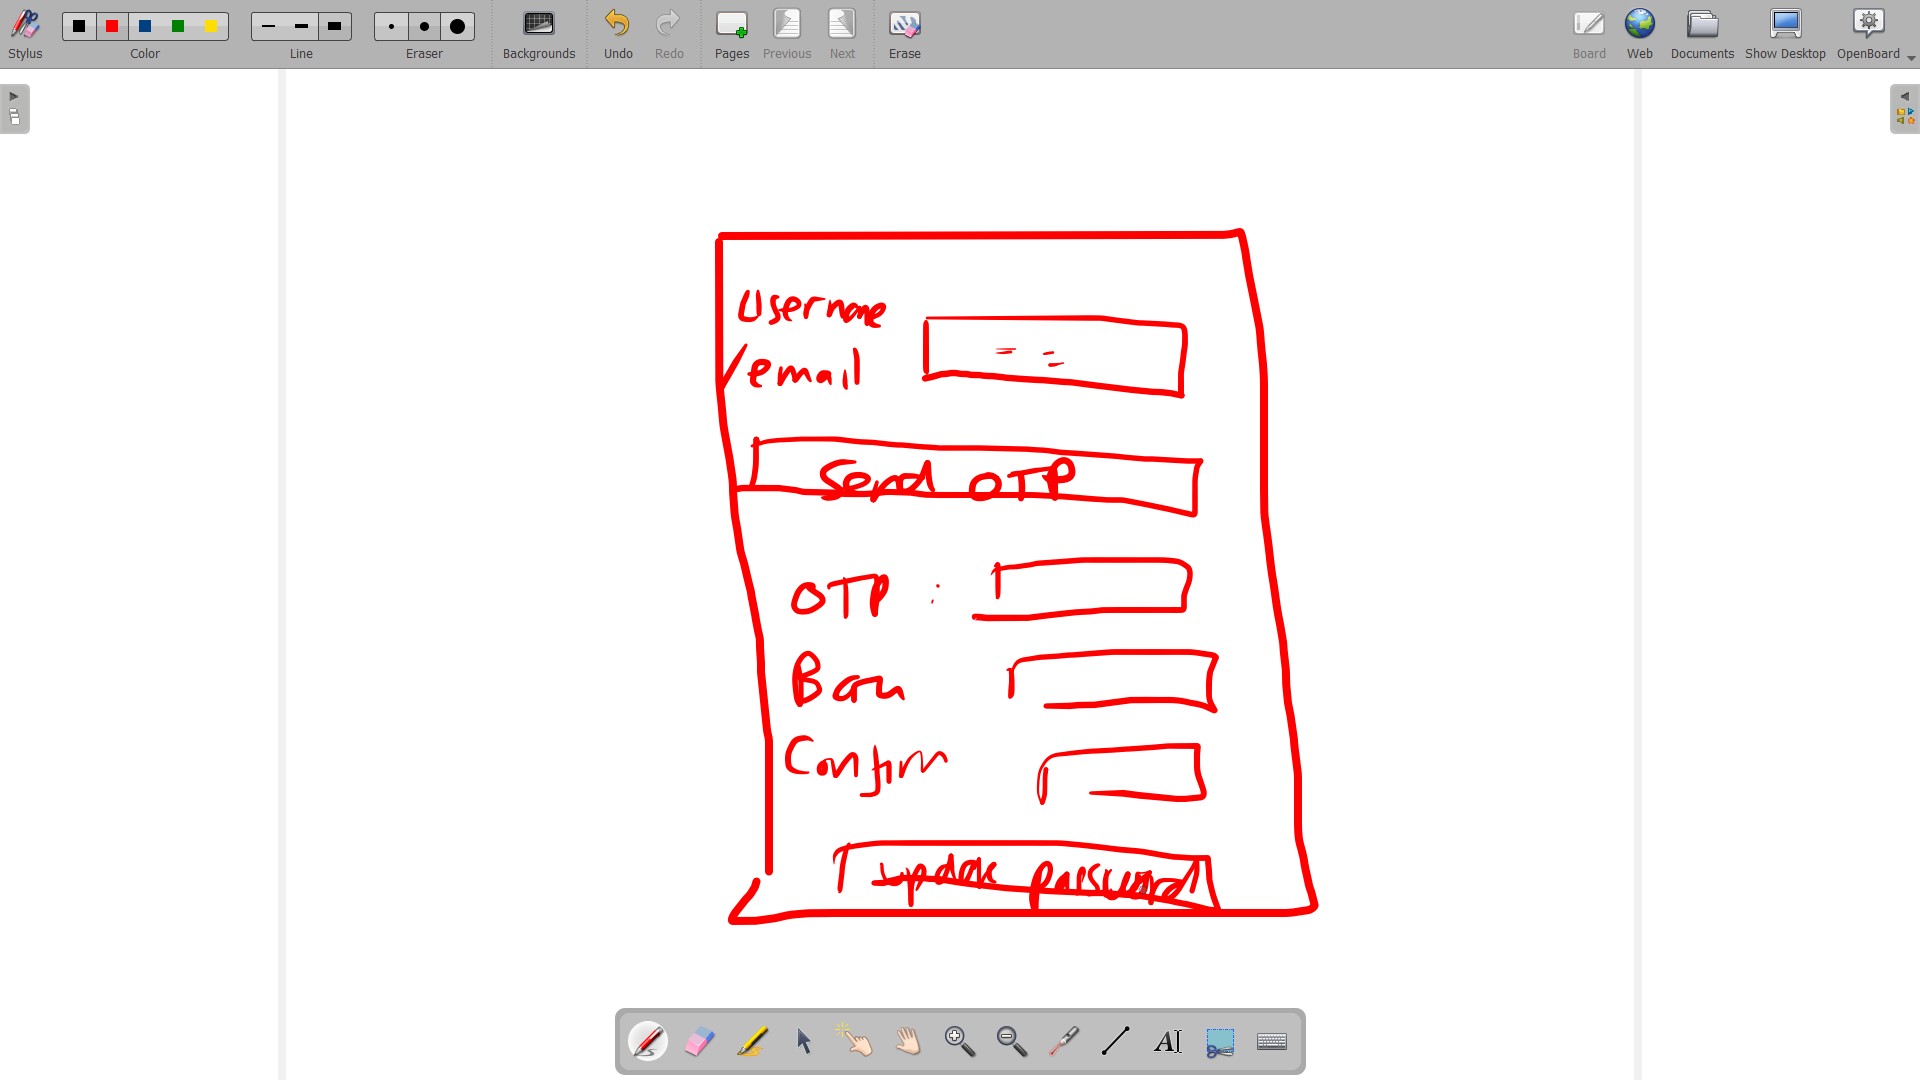 Stylus Color Line Eraser Backgrounds Undo Redo Pages Previous Next Erase Board Web Documents Show Desktop OpenBoard
Username
/email
Send OTP
OTP :
Baru
Confirm
update password